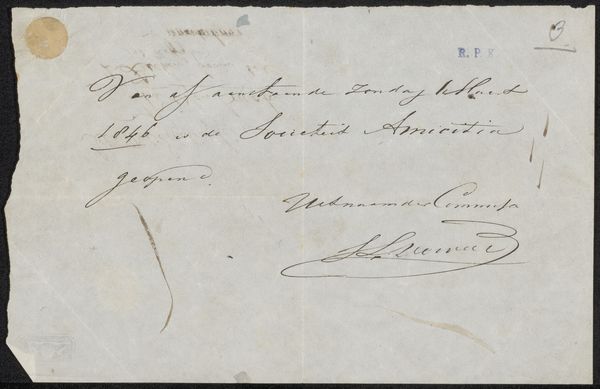 3
R. P. K
Van af aanstaande Zondag 1 Maart
1846 is de Societeit Amicitia
geopend.
Uit naam der Commissie